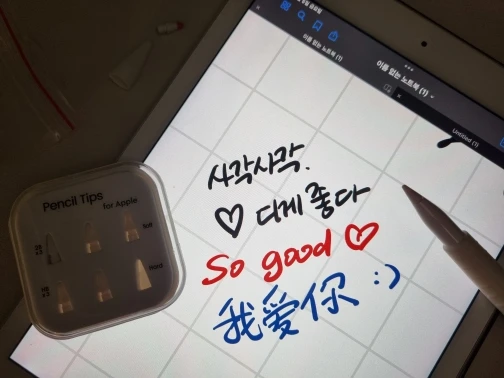 이름 없는 노트북 (1)
이름 없는 노트북 (1)
Untitled (1)
사각사각.
♡ 다게 좋다
So good ♡
我爱你 :)
Pencil Tips
for Apple
Hard